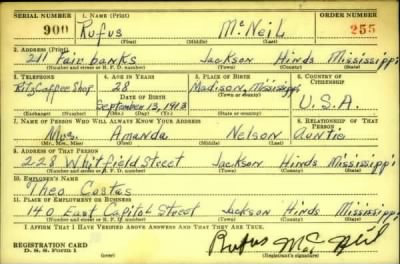 SERIAL NUMBER 1. NAME (Print) ORDER NUMBER
900 Rufus McNeil 255
(First) (Middle) (Last)
2. ADDRESS (Print)
211 Fairbanks Jackson Hinds Mississippi
(Number and street or R. F. D. number) (Town) (County) (State)
3. TELEPHONE 4. AGE IN YEARS 5. PLACE OF BIRTH 6. COUNTRY OF CITIZENSHIP
Ritz Coffee Shop 28 Madison, Mississippi
DATE OF BIRTH (Town or county)
September 13, 1913 U.S.A.
(Exchange) (Number) (Mo.) (Day) (Yr.) (State or country)
7. NAME OF PERSON WHO WILL ALWAYS KNOW YOUR ADDRESS 8. RELATIONSHIP OF THAT PERSON
Mrs. Amanda Nelson Auntie
(Mr., Mrs., Miss) (First) (Middle) (Last)
9. ADDRESS OF THAT PERSON
228 Whitfield Street Jackson Hinds Mississippi
(Number and street or R. F. D. number) (Town) (County) (State)
10. EMPLOYER'S NAME
Theo Costas
11. PLACE OF EMPLOYMENT OR BUSINESS
140 East Capitol Street Jackson Hinds Mississippi
(Number and street or R. F. D. number) (Town) (County) (State)
I AFFIRM THAT I HAVE VERIFIED ABOVE ANSWERS AND THAT THEY ARE TRUE.
REGISTRATION CARD Rufus McNeil
D. S. S. Form 1 (Registrant's signature)